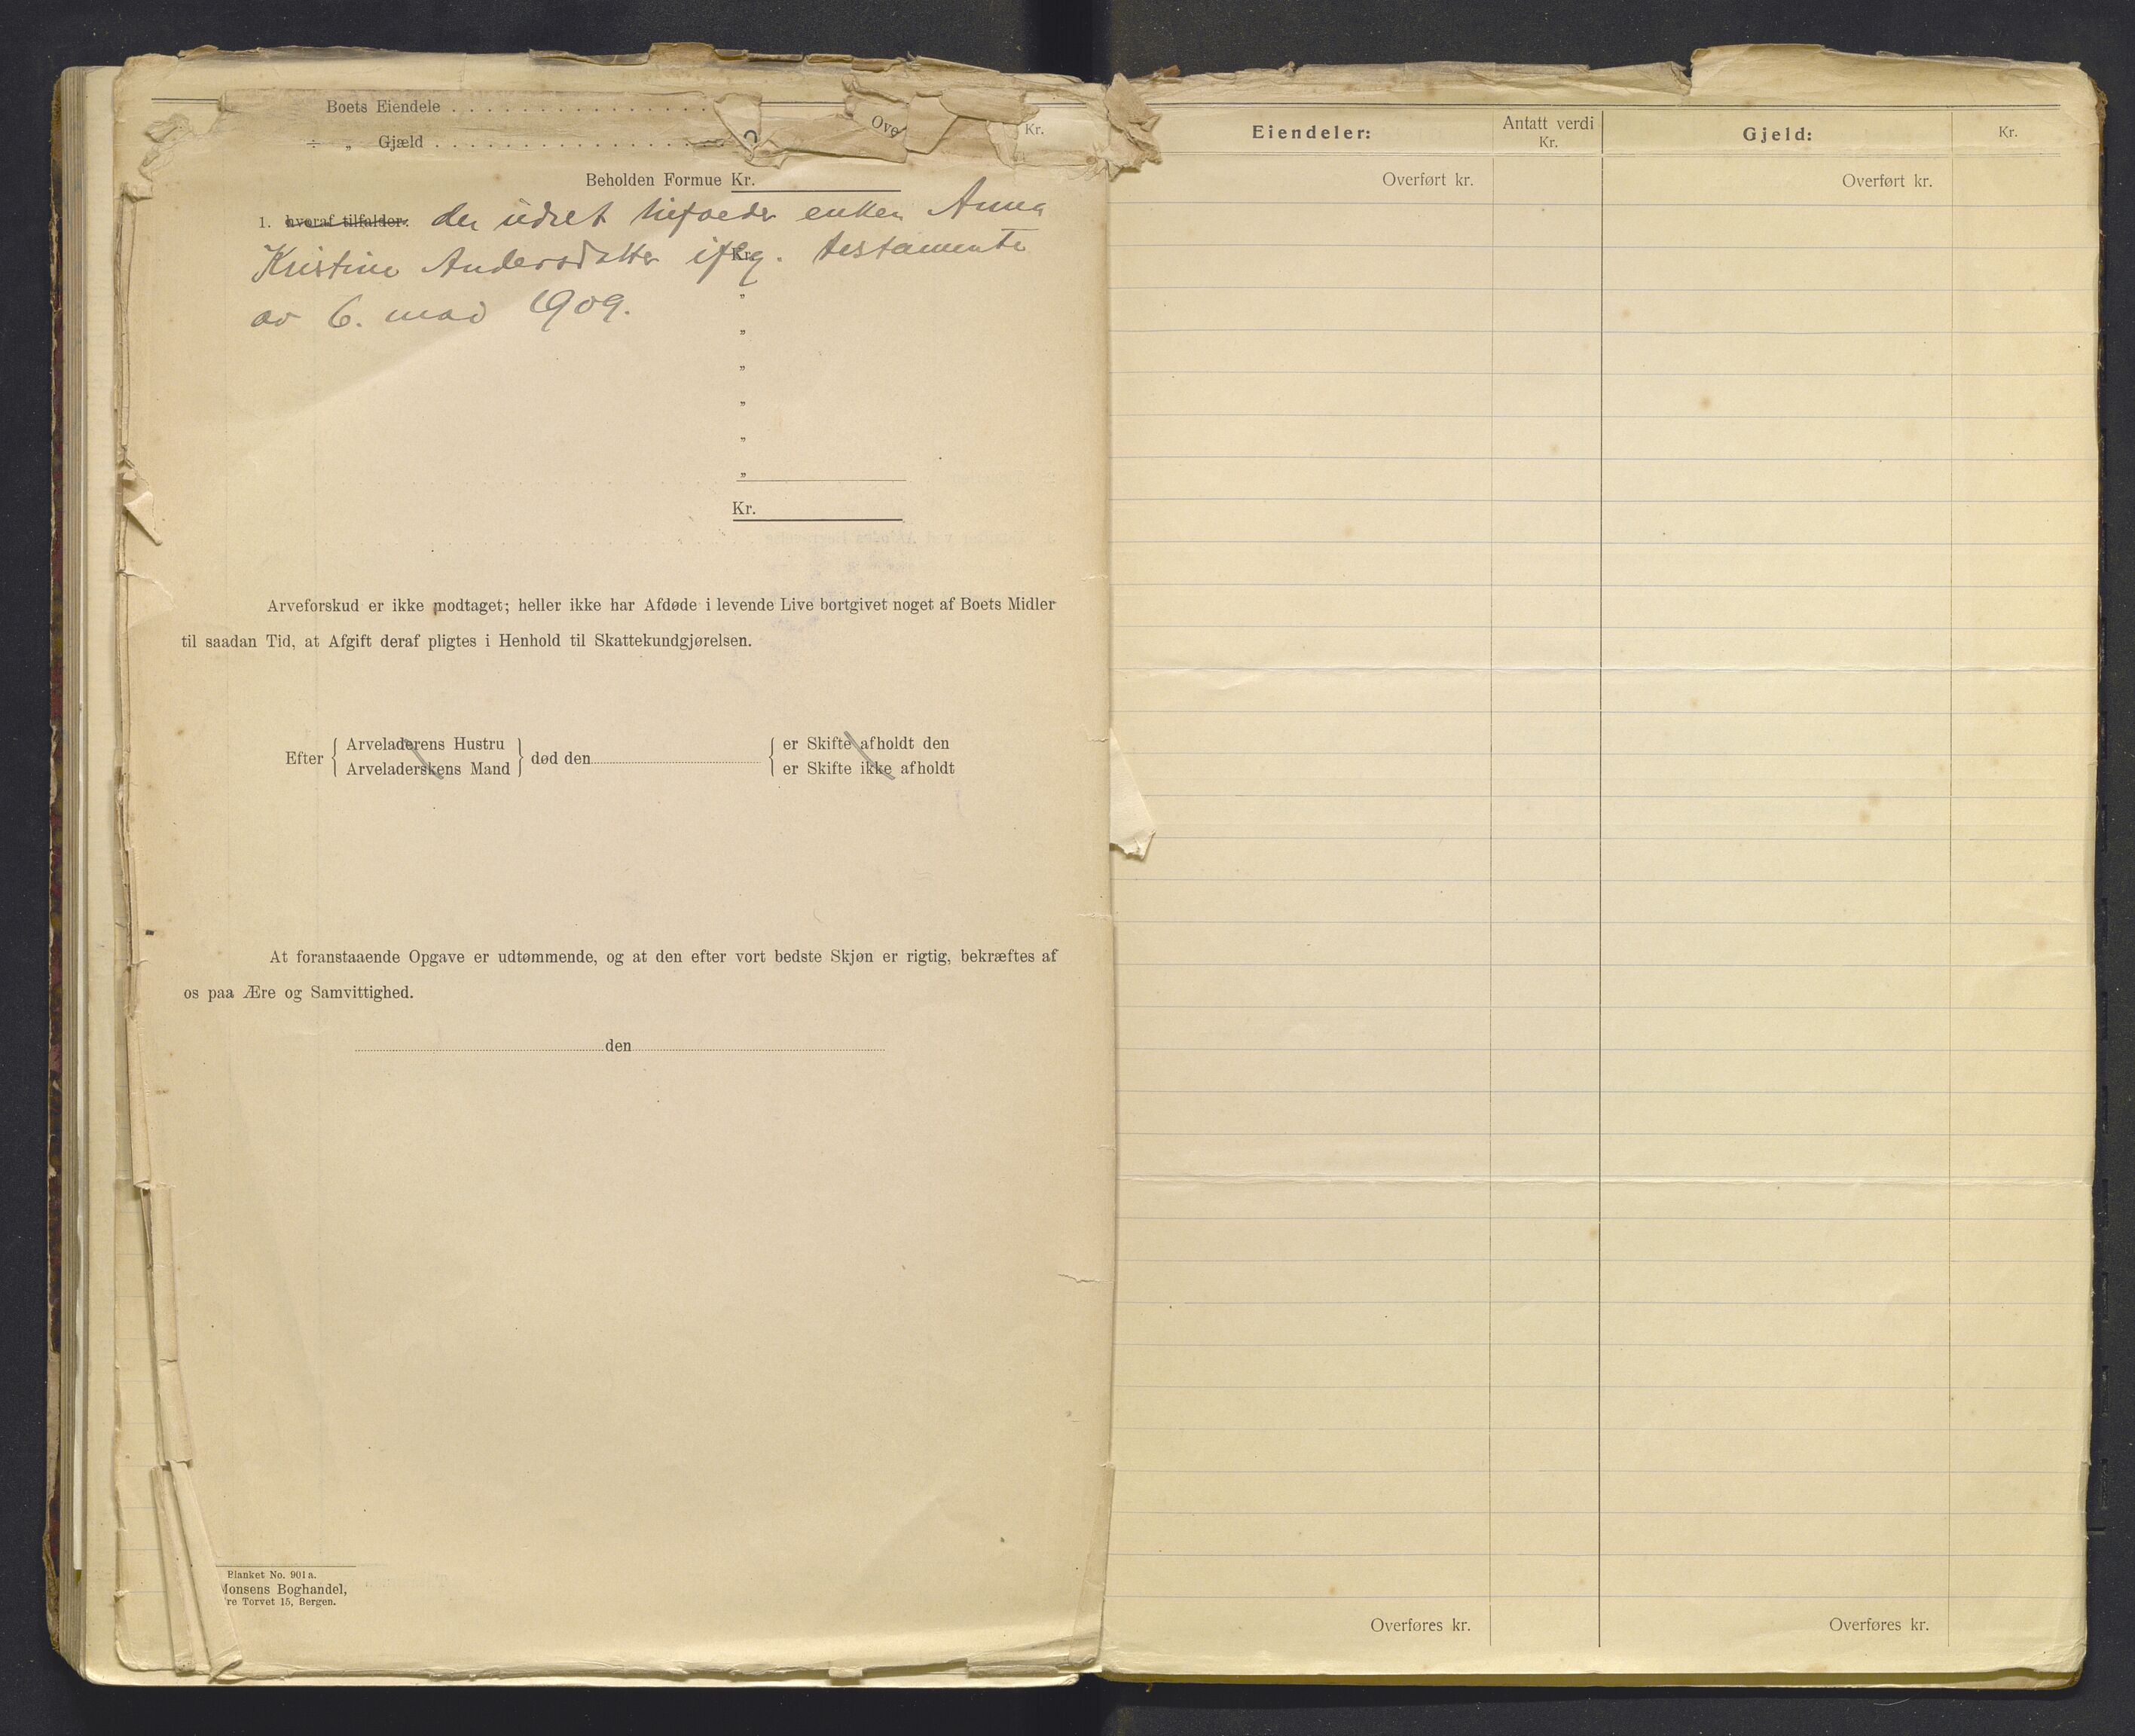 Boets Eiendele
÷ „ Gjæld
Ove
Kr.
Beholden Formue Kr.
1. hvoraf tilfalder: der udelt tilfalder enken Anna
Kristine Andersdatter iflg. testamente
Kr.
av 6. mai 1909.
„
„
„
„
„
„
Kr.
Arveforskud er ikke modtaget; heller ikke har Afdøde i levende Live bortgivet noget af Boets Midler
til saadan Tid, at Afgift deraf pligtes i Henhold til Skattekundgjørelsen.
Efter { Arveladerens Hustru } død den { er Skifte afholdt den
Arveladerskens Mand er Skifte ikke afholdt
At foranstaaende Opgave er udtømmende, og at den efter vort bedste Skjøn er rigtig, bekræftes af
os paa Ære og Samvittighed.
den
Blanket No. 901 a.
Monsens Boghandel,
re Torvet 15, Bergen.
Eiendeler: Antatt verdi Gjeld: Kr.
Kr.
Overført kr. Overført kr.
Overføres kr. Overføres kr.